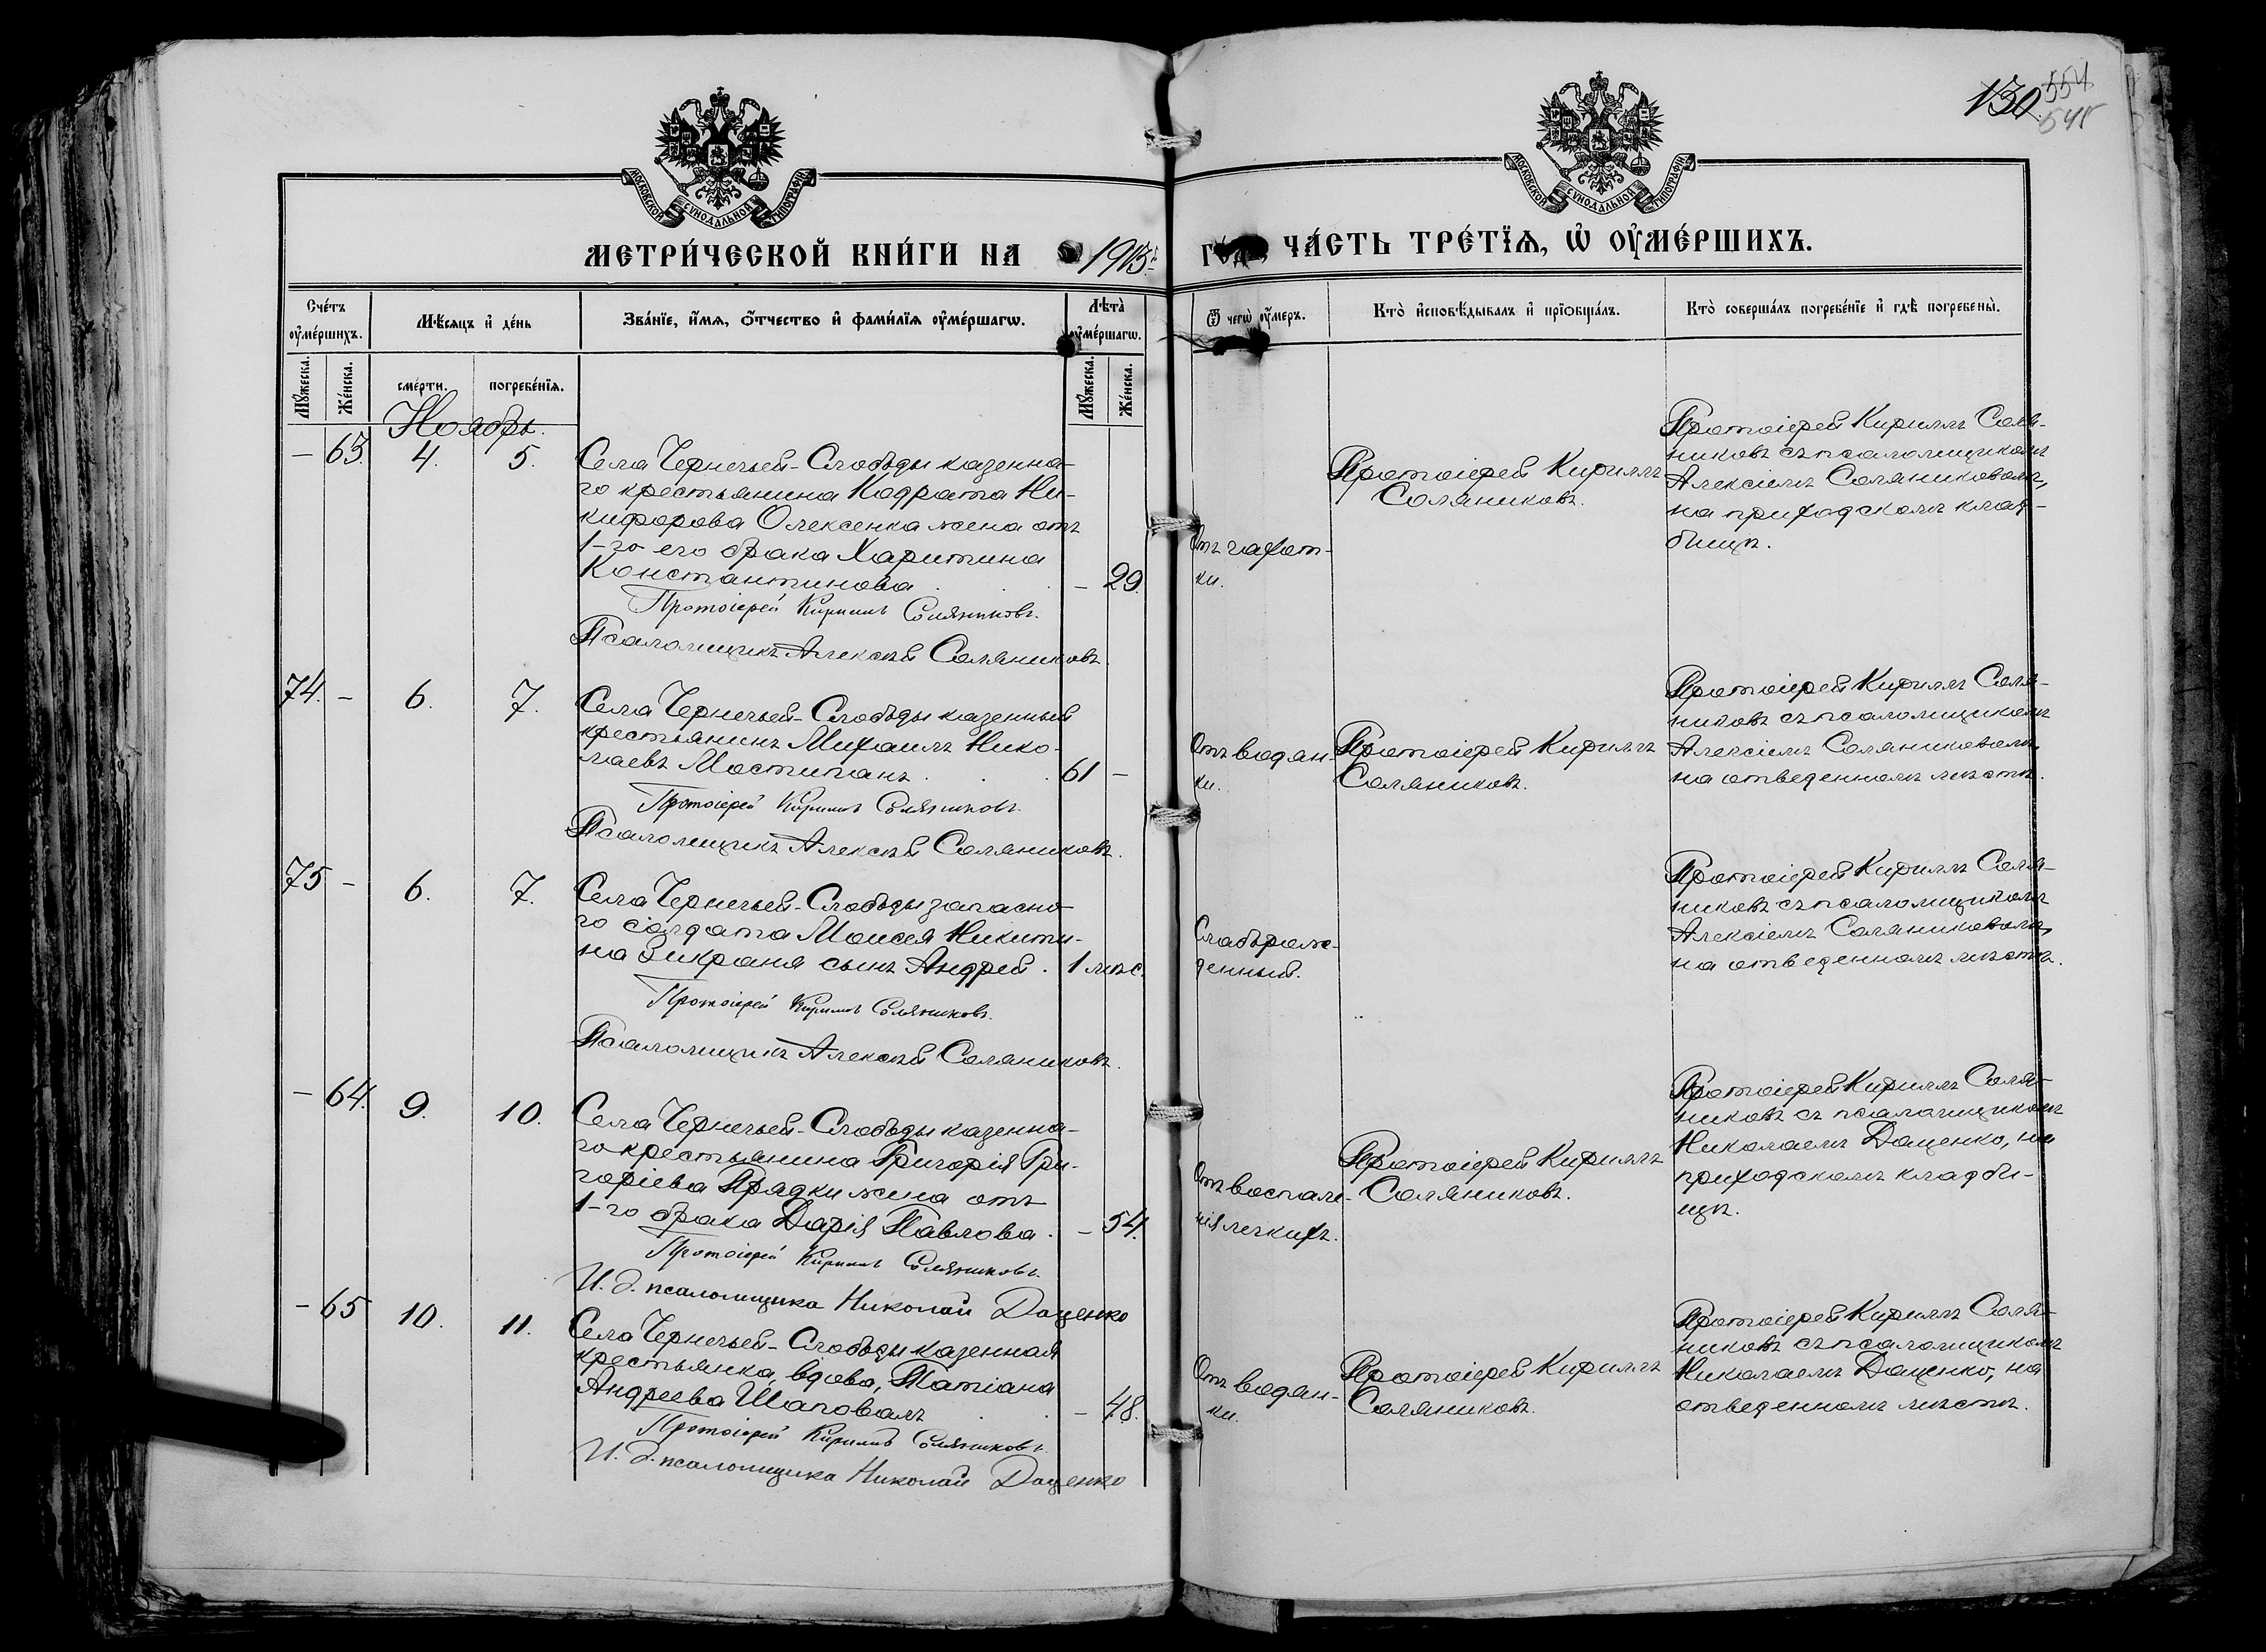 130
554
545
МОСКОВСКОЙ СѴНОДАЛЬНОЙ ТИПОГРАФІИ
МОСКОВСКОЙ СѴНОДАЛЬНОЙ ТИПОГРАФІИ
МЕТРИ́ЧЕСКОЙ КНИ́ГИ НА 1913 г.
ЧА́СТЬ ТРЕ́ТЇѦ, Ѡ҆ ОУ҆МЕ́РШИХЪ.
Сче́тъ оу҆ме́ршихъ.
Мѣ́сяцъ и҆ де́нь
Зва́нїе, и҆́мя, ѻ҆́тчество и҆ фами́лїя оу҆ме́ршагѡ.
Лѣта̀ оу҆ме́ршагѡ.
Ѿ чегѡ̀ оу҆́меръ.
Кто̀ и҆сповѣ́дывалъ и҆ прїѡбща́лъ.
Кто̀ соверша́лъ погребе́нїе и҆ гдѣ̀ погребены̀.
Мꙋ́жеска.
Же́нска.
сме́рти.
погребе́нїя.
Мꙋ́жеска.
Же́нска.
Ноябрь.
– 63. 4. 5.
Села Чернечьей-Слободы казенна-
го крестьянина Кодрата Ни-
кифорова Олексенка жена отъ
1-го его брака Харитина
Константинова. – 29.
Протоіерей Кириллъ Соляниковъ.
Псаломщикъ Алексѣй Соляниковъ.
Отъ чахот-
ки.
Протоіерей Кириллъ
Соляниковъ.
Протоіерей Кириллъ Соля-
никовъ съ псаломщикомъ
Алексіемъ Соляниковымъ,
на приходскомъ клад-
бищѣ.
74. – 6. 7.
Села Чернечьей-Слободы казенный
крестьянинъ Михаилъ Нико-
лаевъ Мостипанъ . . . 61 –
Протоіерей Кириллъ Соляниковъ.
Псаломщикъ Алексѣй Соляниковъ.
Отъ водян-
ки.
Протоіерей Кириллъ
Соляниковъ.
Протоіерей Кириллъ Соля-
никовъ съ псаломщикомъ
Алексіемъ Соляниковымъ,
на отведенномъ мѣстѣ.
75 – 6. 7.
Села Чернечьей-Слободы запасно-
го солдата Моисея Никити-
на Зикраня сынъ Андрей . 1 мѣс.
Протоіерей Кириллъ Соляниковъ.
Псаломщикъ Алексѣй Соляниковъ.
Слаборож-
денный.
Протоіерей Кириллъ Соля-
никовъ съ псаломщикомъ
Алексіемъ Соляниковымъ,
на отведенномъ мѣстѣ.
– 64. 9. 10.
Села Чернечьей-Слободы казенна-
го крестьянина Григорія Гри-
горіева Прядки жена отъ
1-го брака Дарія Павлова. – 54.
Протоіерей Кириллъ Соляниковъ.
И. д. псаломщика Николай Даценко
Отъ воспале-
нія легкихъ.
Протоіерей Кириллъ
Соляниковъ.
Протоіерей Кириллъ Соля-
никовъ съ псаломщикомъ
Николаемъ Даценко, на
приходскомъ кладби-
щѣ.
– 65 10. 11.
Села Чернечьей-Слободы казенная
крестьянка, вдова, Татіана
Андреева Шаповалъ . . – 48.
Протоіерей Кириллъ Соляниковъ.
И. д. псаломщика Николай Даценко
Отъ водян-
ки.
Протоіерей Кириллъ
Соляниковъ.
Протоіерей Кириллъ Соля-
никовъ съ псаломщикомъ
Николаемъ Даценко, на
отведенномъ мѣстѣ.